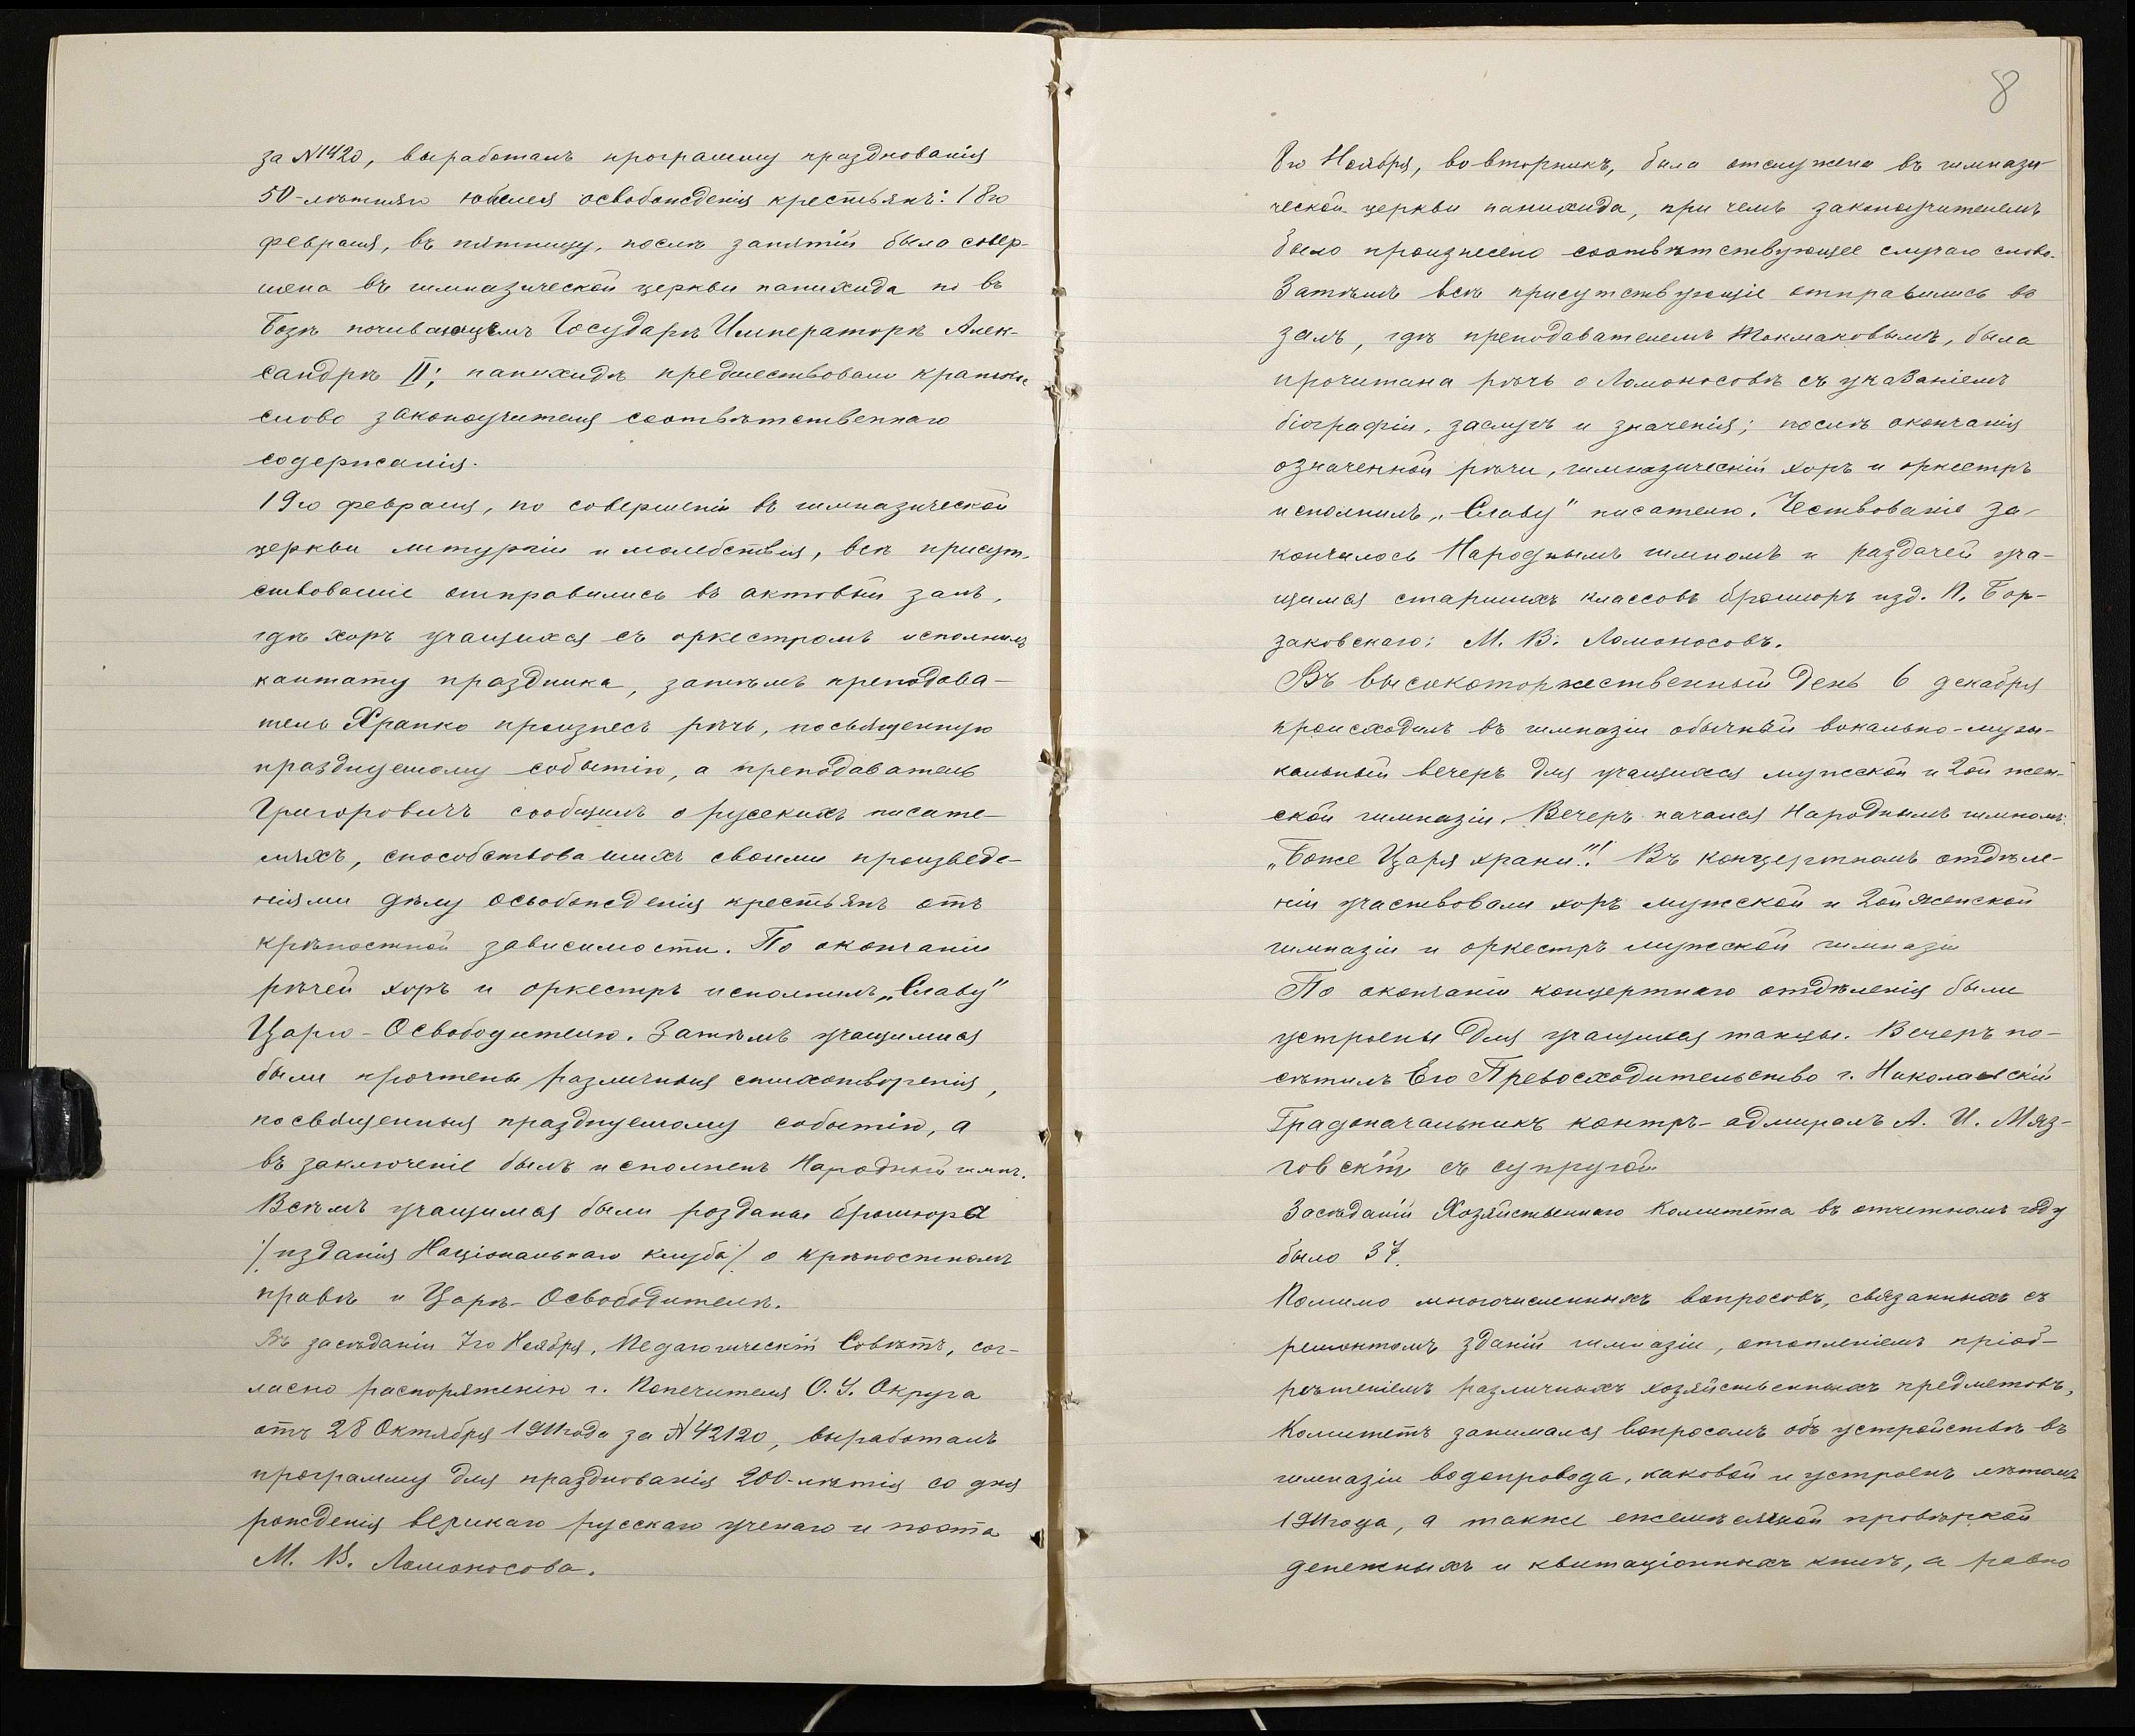 за №1420, выработалъ программу празднованія
50-лѣтняго юбилея освобожденія крестьянъ: 18го
февраля, въ пятницу, послѣ занятій была совер-
шена въ гимназической церкви панихида по въ
Бозѣ почивающемъ Государѣ Императорѣ Алек-
сандрѣ II; панихидѣ предшествовало краткое
слово законоучителя соотвѣтственнаго
содержанія.
19го февраля, по совершеніи въ гимназической
церкви литургіи и молебствія, всѣ присут-
ствовавшіе отправились въ актовый залъ,
гдѣ хоръ учащихся съ оркестромъ исполнилъ
кантату праздника, затѣмъ преподава-
тель Храпко произнесъ рѣчь, посвященную
празднуемому событію, а преподаватель
Григоровичъ сообщилъ о русскихъ писате-
ляхъ, способствовавшихъ своими произведе-
ніями дѣлу освобожденія крестьянъ отъ
крѣпостной зависимости. По окончаніи
рѣчей хоръ и оркестръ исполнилъ „Славу"
Царю-Освободителю. Затѣмъ учащимися
были прочтены различныя стихотворенія,
посвященныя празднуемому событію, а
въ заключеніе былъ исполненъ Народный гимнъ.
Всѣмъ учащимся были розданы брошюра
/изданія Національнаго клуба/ о крѣпостномъ
правѣ и Царѣ-Освободителѣ.
Въ засѣданіи 7го Ноября, Педагогическій Совѣтъ, сог-
ласно распоряженію г. Попечителя О. У. Округа
отъ 28 Октября 1911 года за №42120, выработалъ
программу для празднованія 200-лѣтія со дня
рожденія великаго русскаго ученаго и поэта
М. В. Ломоносова.
8
8го Ноября, во вторникъ, была отслужена въ гимнази-
ческой церкви панихида, при чемъ законоучителемъ
было произнесено соотвѣтствующее случаю слово.
Затѣмъ всѣ присутствующіе отправились въ
залъ, гдѣ преподавателемъ Токмаковымъ, была
прочитана рѣчь о Ломоносовѣ съ указаніемъ
біографіи, заслугъ и значенія; послѣ окончанія
означенной рѣчи, гимназическій хоръ и оркестръ
исполнилъ „Славу" писателю. Чествованіе за-
кончилось Народнымъ гимномъ и раздачей уча-
щимся старшихъ классовъ брошюръ изд. П. Бор-
заковскаго: М. В. Ломоносовъ.
Въ высокоторжественный день 6 декабря
происходилъ въ гимназіи обычный вокально-музы-
кальный вечеръ для учащихся мужской и 2ой жен-
ской гимназіи. Вечеръ начался Народнымъ гимномъ:
„Боже Царя храни"! Въ концертномъ отдѣле-
ніи участвовали хоръ мужской и 2ой женской
гимназіи и оркестръ мужской гимназіи
По окончаніи концертнаго отдѣленія были
устроены для учащихся танцы. Вечеръ по-
сѣтилъ Его Превосходительство г. Николаевскій
Градоначальникъ контръ-адмиралъ А. И. Мяз-
говскій съ супругой
Засѣданій Хозяйственнаго Комитета въ отчетномъ году
было 37.
Помимо многочисленныхъ вопросовъ, связанныхъ съ
ремонтомъ зданій гимназіи, отопленіемъ пріоб-
рѣтеніемъ различныхъ хозяйственныхъ предметовъ,
Комитетъ занимался вопросомъ объ устройствѣ въ
гимназіи водопровода, каковой и устроенъ лѣтомъ
1911 года, а также ежемѣсячной провѣркой
денежныхъ и квитаціонныхъ книгъ, а равно